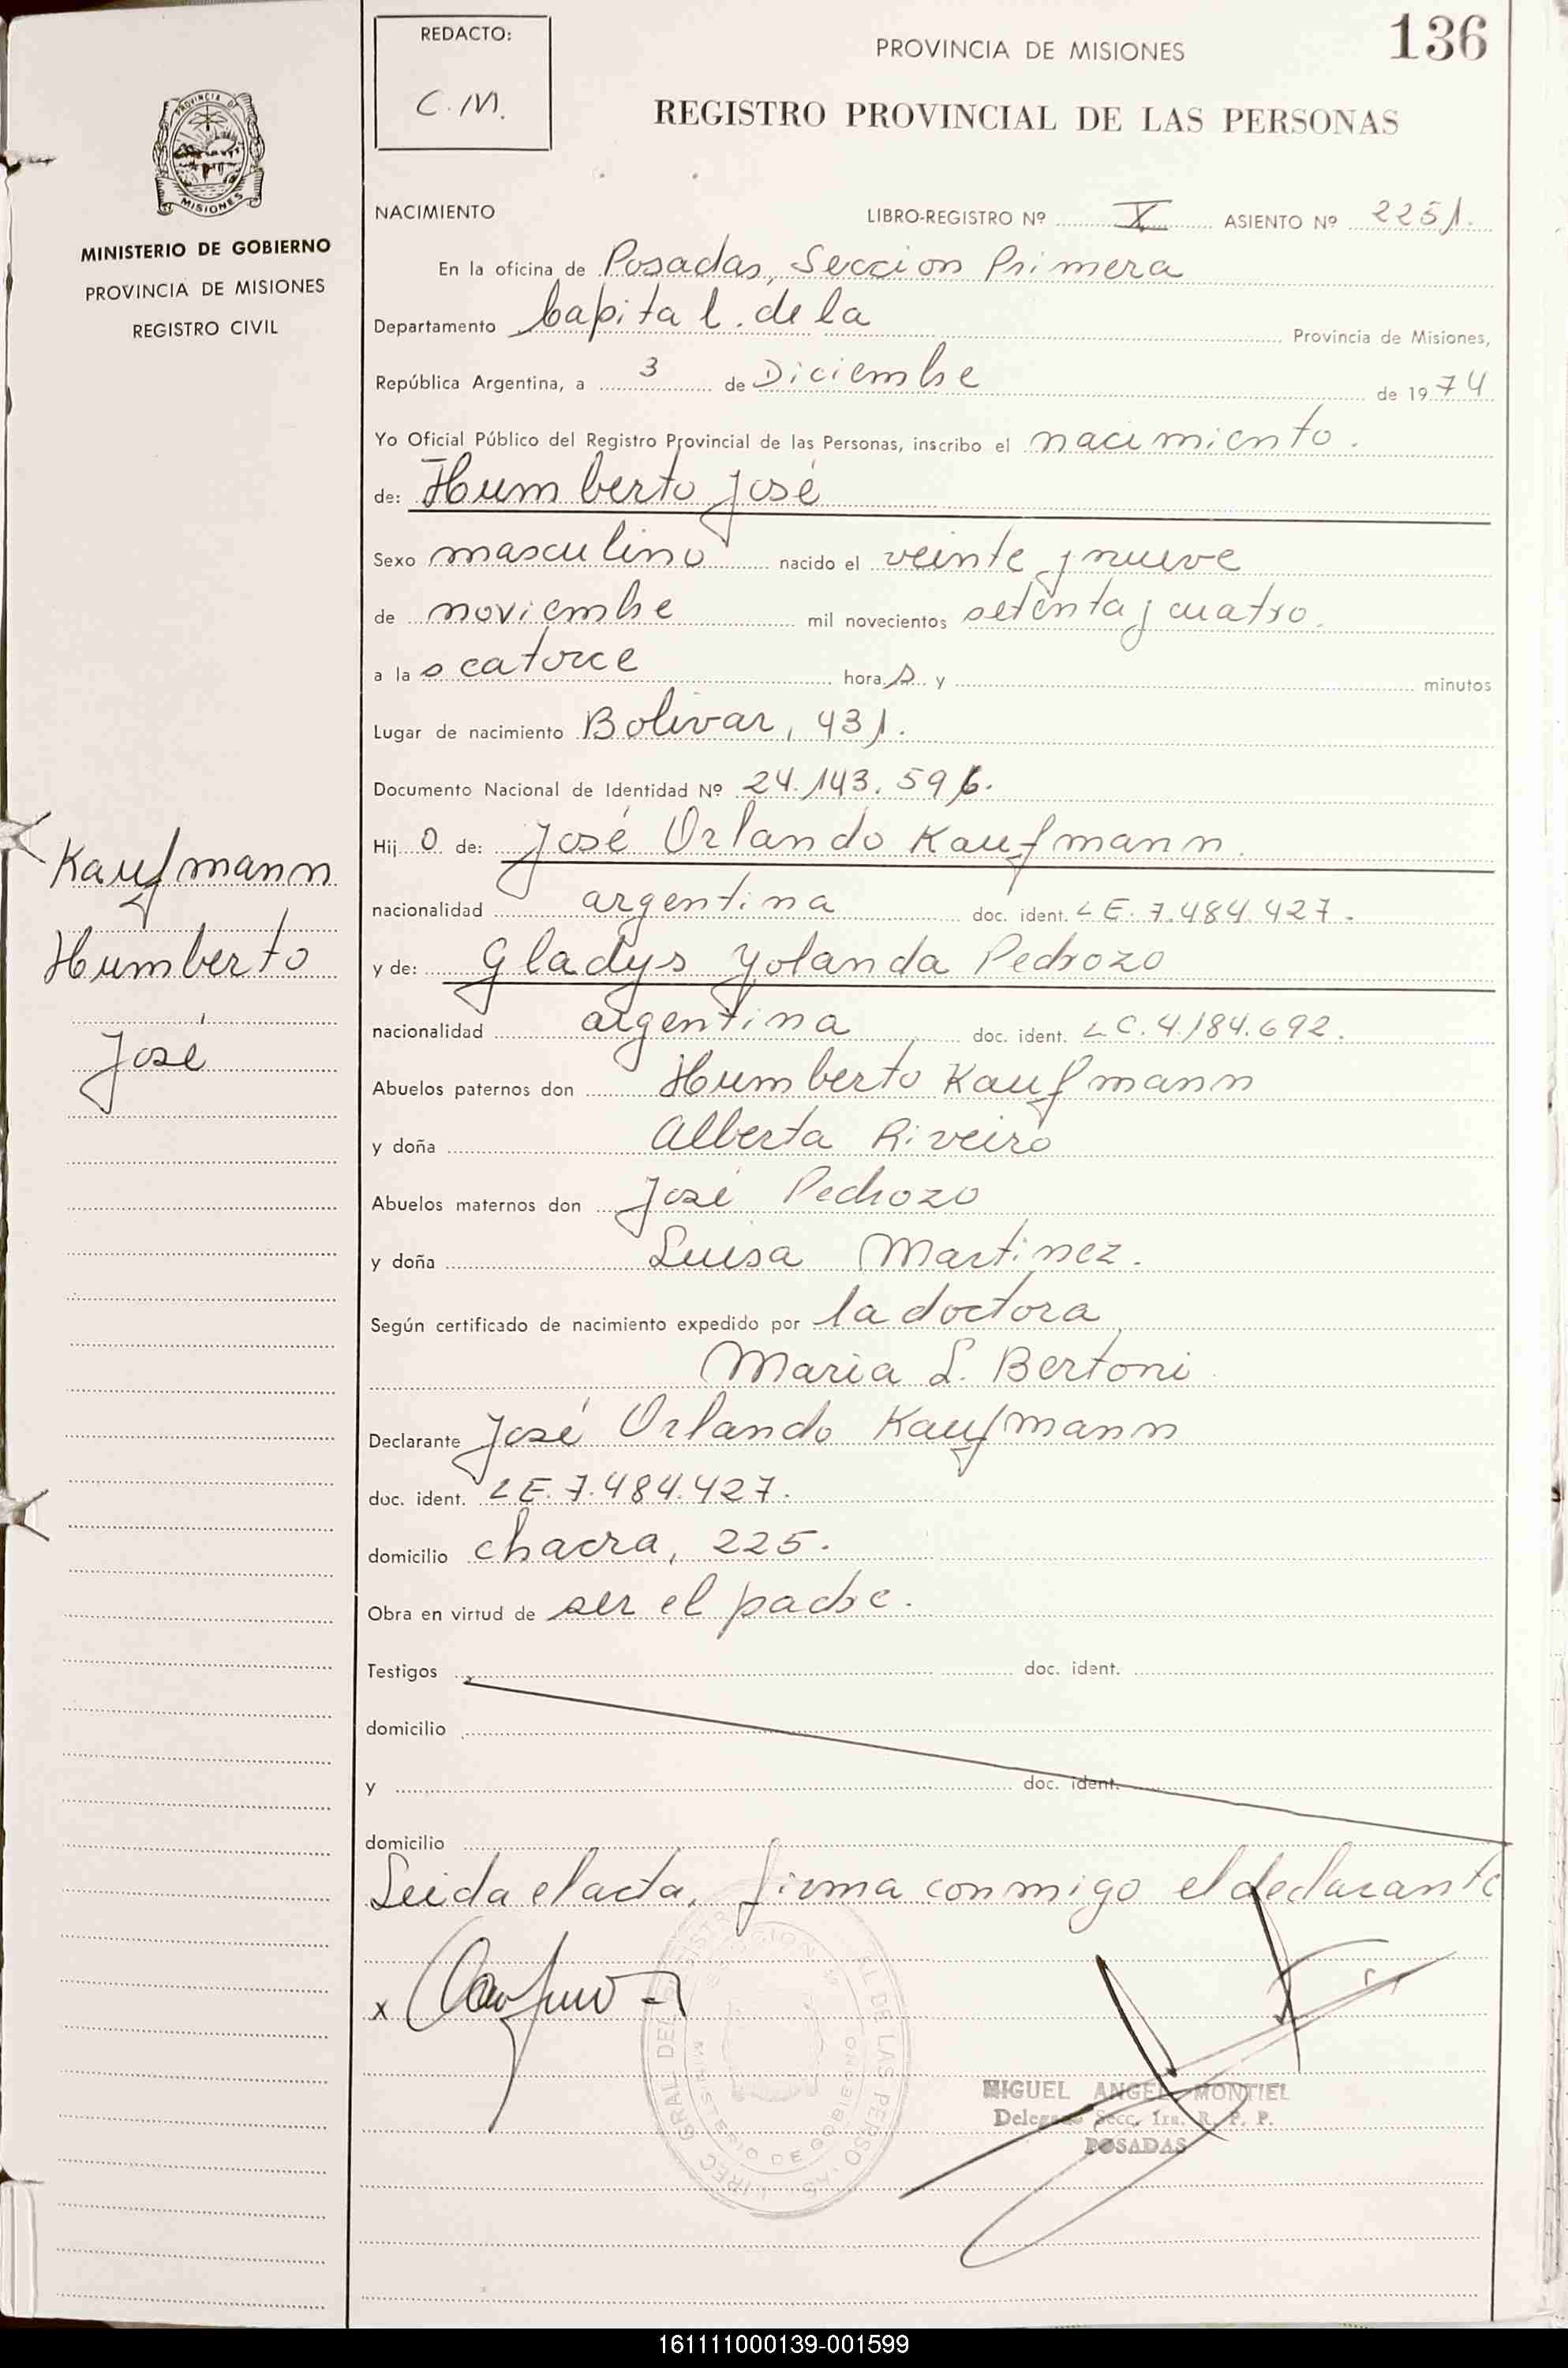 REDACTO:
C.M.
136
PROVINCIA DE MISIONES
REGISTRO PROVINCIAL DE LAS PERSONAS
PROVINCIA DE
MISIONES
MINISTERIO DE GOBIERNO
PROVINCIA DE MISIONES
REGISTRO CIVIL
NACIMIENTO LIBRO-REGISTRO Nº X ASIENTO Nº 2251.
En la oficina de Posadas, Seccion Primera
Departamento Capital. de la Provincia de Misiones,
República Argentina, a 3 de Diciembre de 1974
Yo Oficial Público del Registro Provincial de las Personas, inscribo el nacimiento.
de: Humberto José
Sexo masculino nacido el veinte y nueve
de noviembre mil novecientos setenta y cuatro.
a las catorce horas y minutos
Lugar de nacimiento Bolivar, 431.
Documento Nacional de Identidad Nº 24.143.596.
Hijo de: José Orlando Kaufmann.
nacionalidad argentina doc. ident. LE. 7.484.427.
y de: Gladys Yolanda Pedrozo
nacionalidad argentina doc. ident. LC. 4.184.692.
Abuelos paternos don Humberto Kaufmann
y doña Alberta Riveiro
Abuelos maternos don José Pedrozo
y doña Luisa Martinez.
Según certificado de nacimiento expedido por la doctora
Maria L. Bertoni
Declarante José Orlando Kaufmann
doc. ident. LE. 7.484.427.
domicilio chacra, 225.
Obra en virtud de ser el padre.
Testigos doc. ident.
domicilio
y doc. ident.
domicilio
Leida el acta, firma conmigo el declarante
x
Kaufmann
Humberto
José
MINISTERIO DE GOBIERNO
MIGUEL ANGEL MONTIEL
Delegado Secc. 1ra. R. P. P.
POSADAS
161111000139-001599